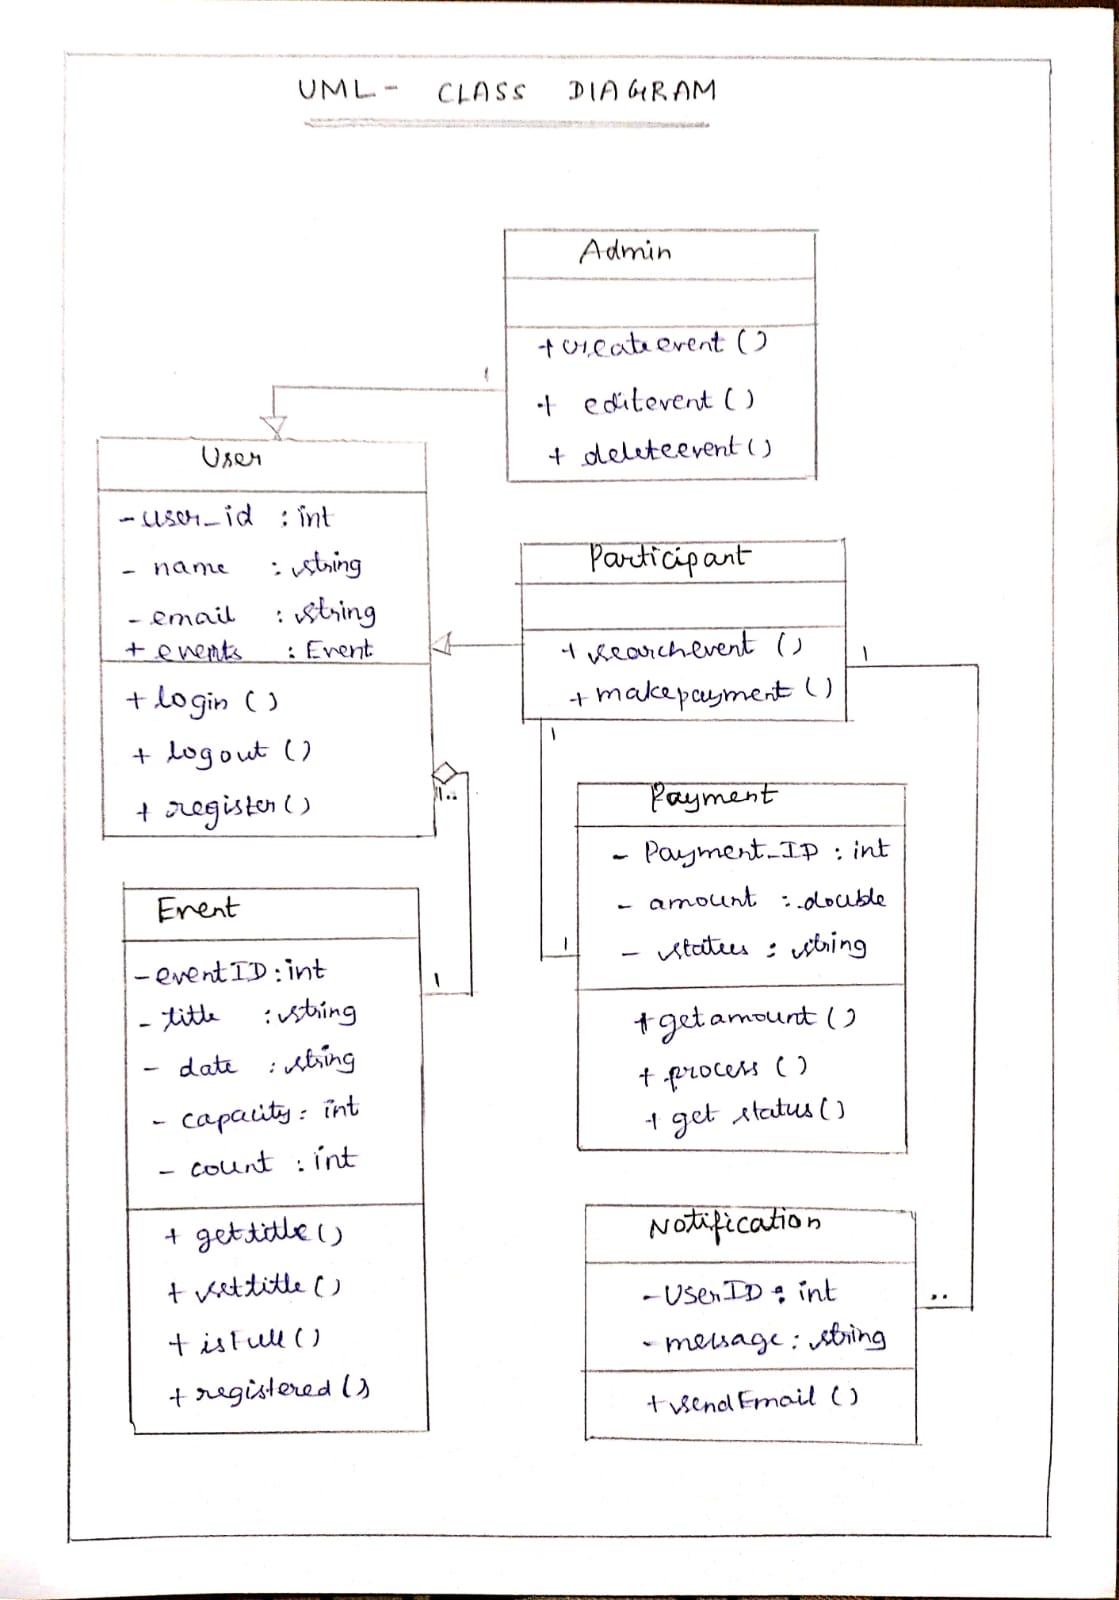 UML- CLASS DIAGRAM
Admin
+ createevent ()
+ editevent ()
+ deleteevent ()
1
User
- user_id : int
- name : string
- email : string
+ events : Event
+ login ()
+ logout ()
+ register ()
Participant
+ searchevent ()
+ makepayment ()
1
1
1..
Payment
- Payment_ID : int
- amount : double
- status : string
+ getamount ()
+ process ()
+ get status ()
1
Event
- eventID : int
- title : string
- date : string
- capacity : int
- count : int
+ gettitle ()
+ settitle ()
+ isFull ()
+ registered ()
1
Notification
- UserID : int
- message : string
+ sendEmail ()
..